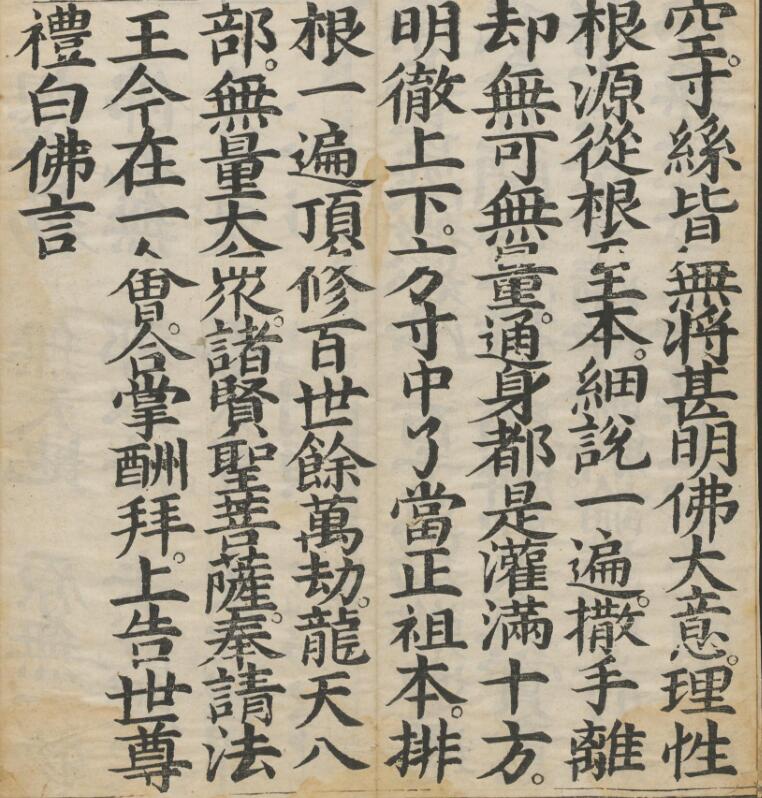 空。寸絲皆無將甚明佛大意。理性
根源從根至本。細說一遍。撒手離
却無可無量。通身都是灌滿十方。
明徹上下。方寸中了當正祖本。排
根一遍頂修百世餘萬劫。龍天八
部。無量大衆。諸賢聖菩薩。奉請法
王今在一會。合掌酬拜。上告世尊
禮白佛言